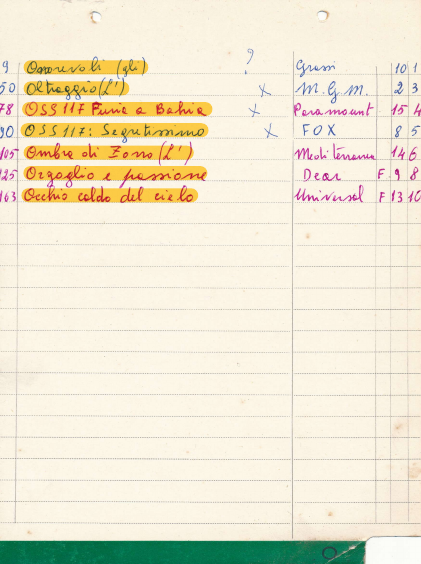 9 Onorevoli (gli) ? Grassi 10 1
50 Oltraggio (L') x M.G.M. 2 3
78 OSS 117 Furia a Bahia x Paramount 15 4
90 OSS 117: Segretissimo x FOX 8 5
105 Ombra di Zorro (L') Mediterranea 14 6
125 Orgoglio e passione Dear F 9 8
163 Occhio caldo del cielo Universal F 13 10